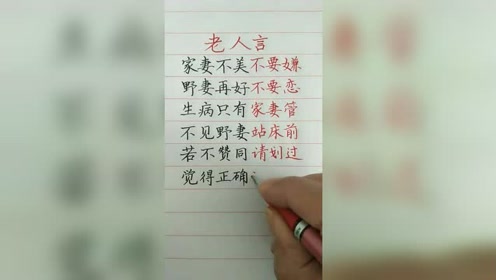 老人言
家妻不美不要嫌
野妻再好不要恋
生病只有家妻管
不见野妻站床前
若不赞同请划过
觉得正确